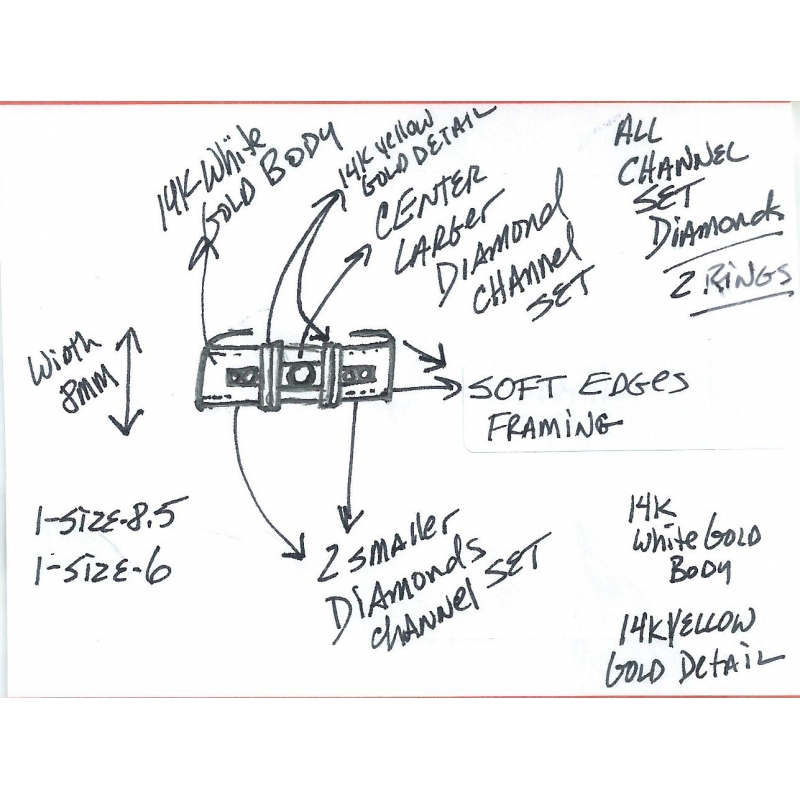 14K White
GOLD BODY
14K Yellow
GOLD DETAIL
CENTER
LARGER
DIAMOND
CHANNEL
SET
ALL
CHANNEL
SET
DiAmonds
2 RiNGS
Width
8MM
SOFT EDGES
FRAMING
1-SiZE-8.5
1-SiZE-6
2 SMAller
DiAmonds
CHANNEL SET
14K
White GOLD
BODY
14K YELLOW
GOLD DETAiL